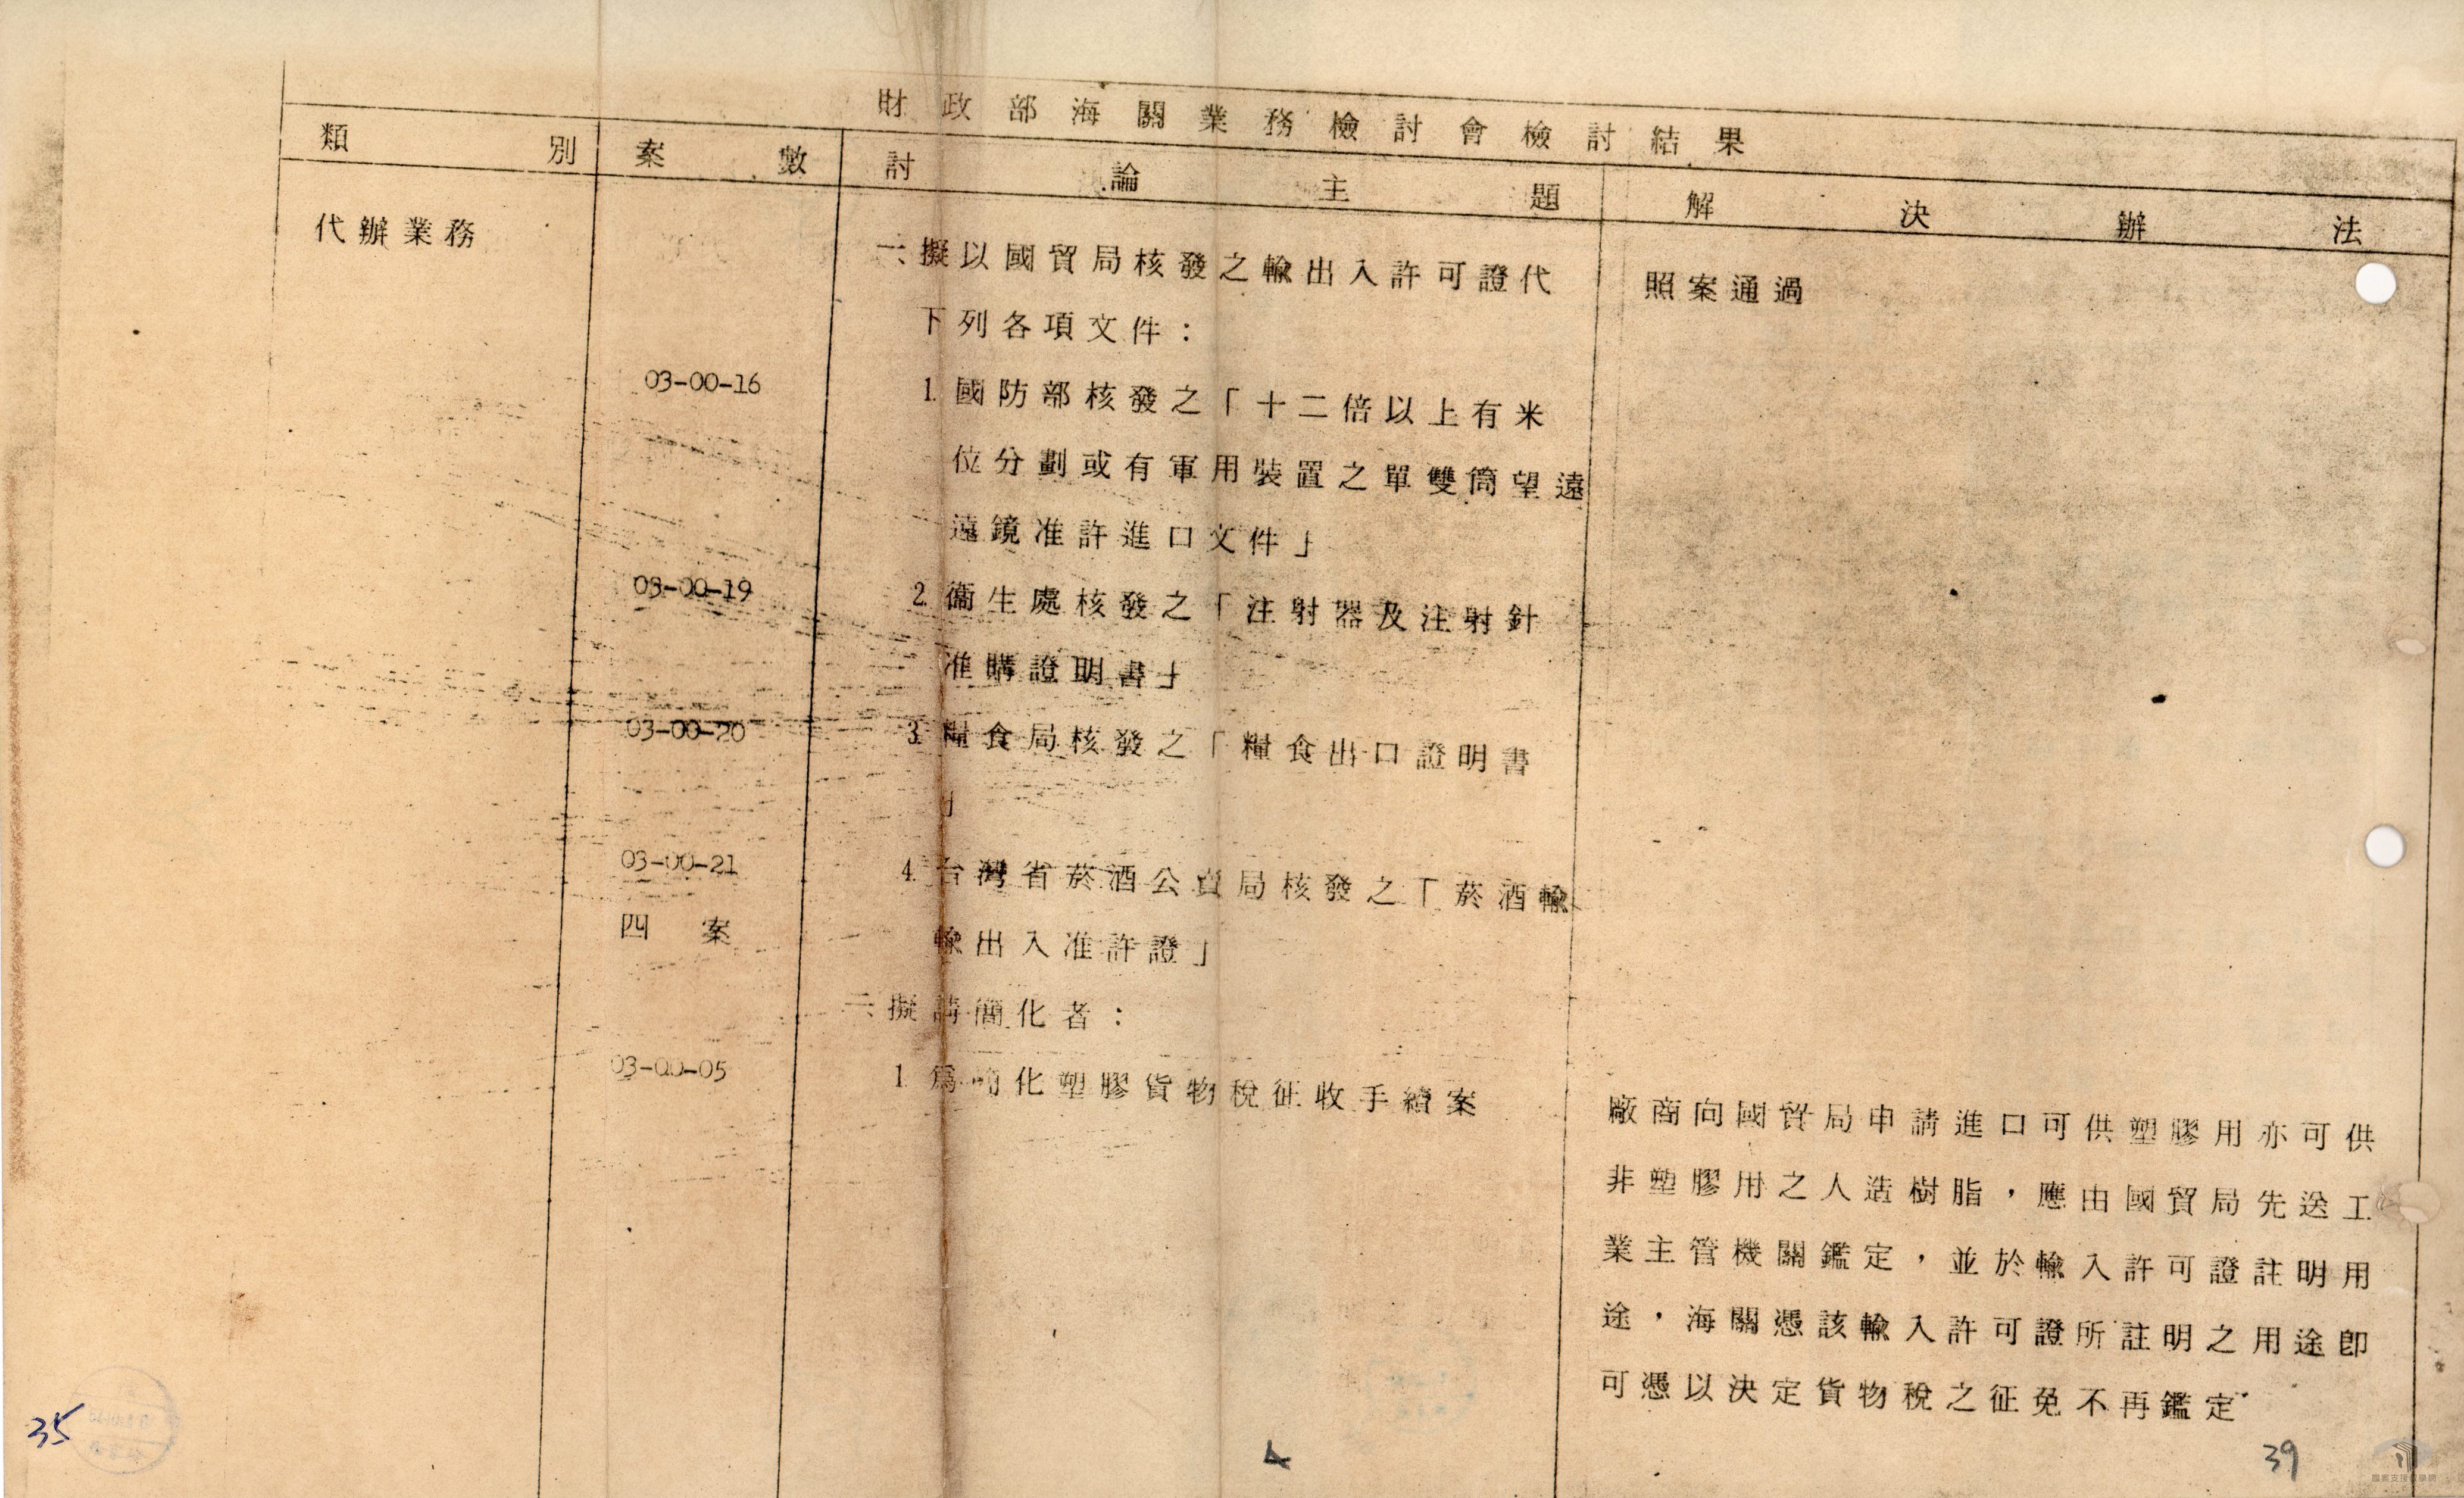 財政部海關業務檢討會檢討結果
類別 案數 討論主題 解決辦法
代辦業務
一、擬以國貿局核發之輸出入許可證代
照案通過
下列各項文件：
03-00-16
1. 國防部核發之「十二倍以上有米
位分劃或有軍用裝置之單雙筒望遠
遠鏡准許進口文件」
03-00-19
2. 衞生處核發之「注射器及注射針
准購證明書」
03-00-20
3. 糧食局核發之「糧食出口證明書
」
03-00-21
4. 台灣省菸酒公賣局核發之「菸酒輸
四案
輸出入准許證」
二、擬請簡化者：
03-00-05
1. 為簡化塑膠貨物稅征收手續案
廠商向國貿局申請進口可供塑膠用亦可供
非塑膠用之人造樹脂，應由國貿局先送工
業主管機關鑑定，並於輸入許可證註明用
途，海關憑該輸入許可證所註明之用途卽
可憑以決定貨物稅之征免不再鑑定
35
4
39